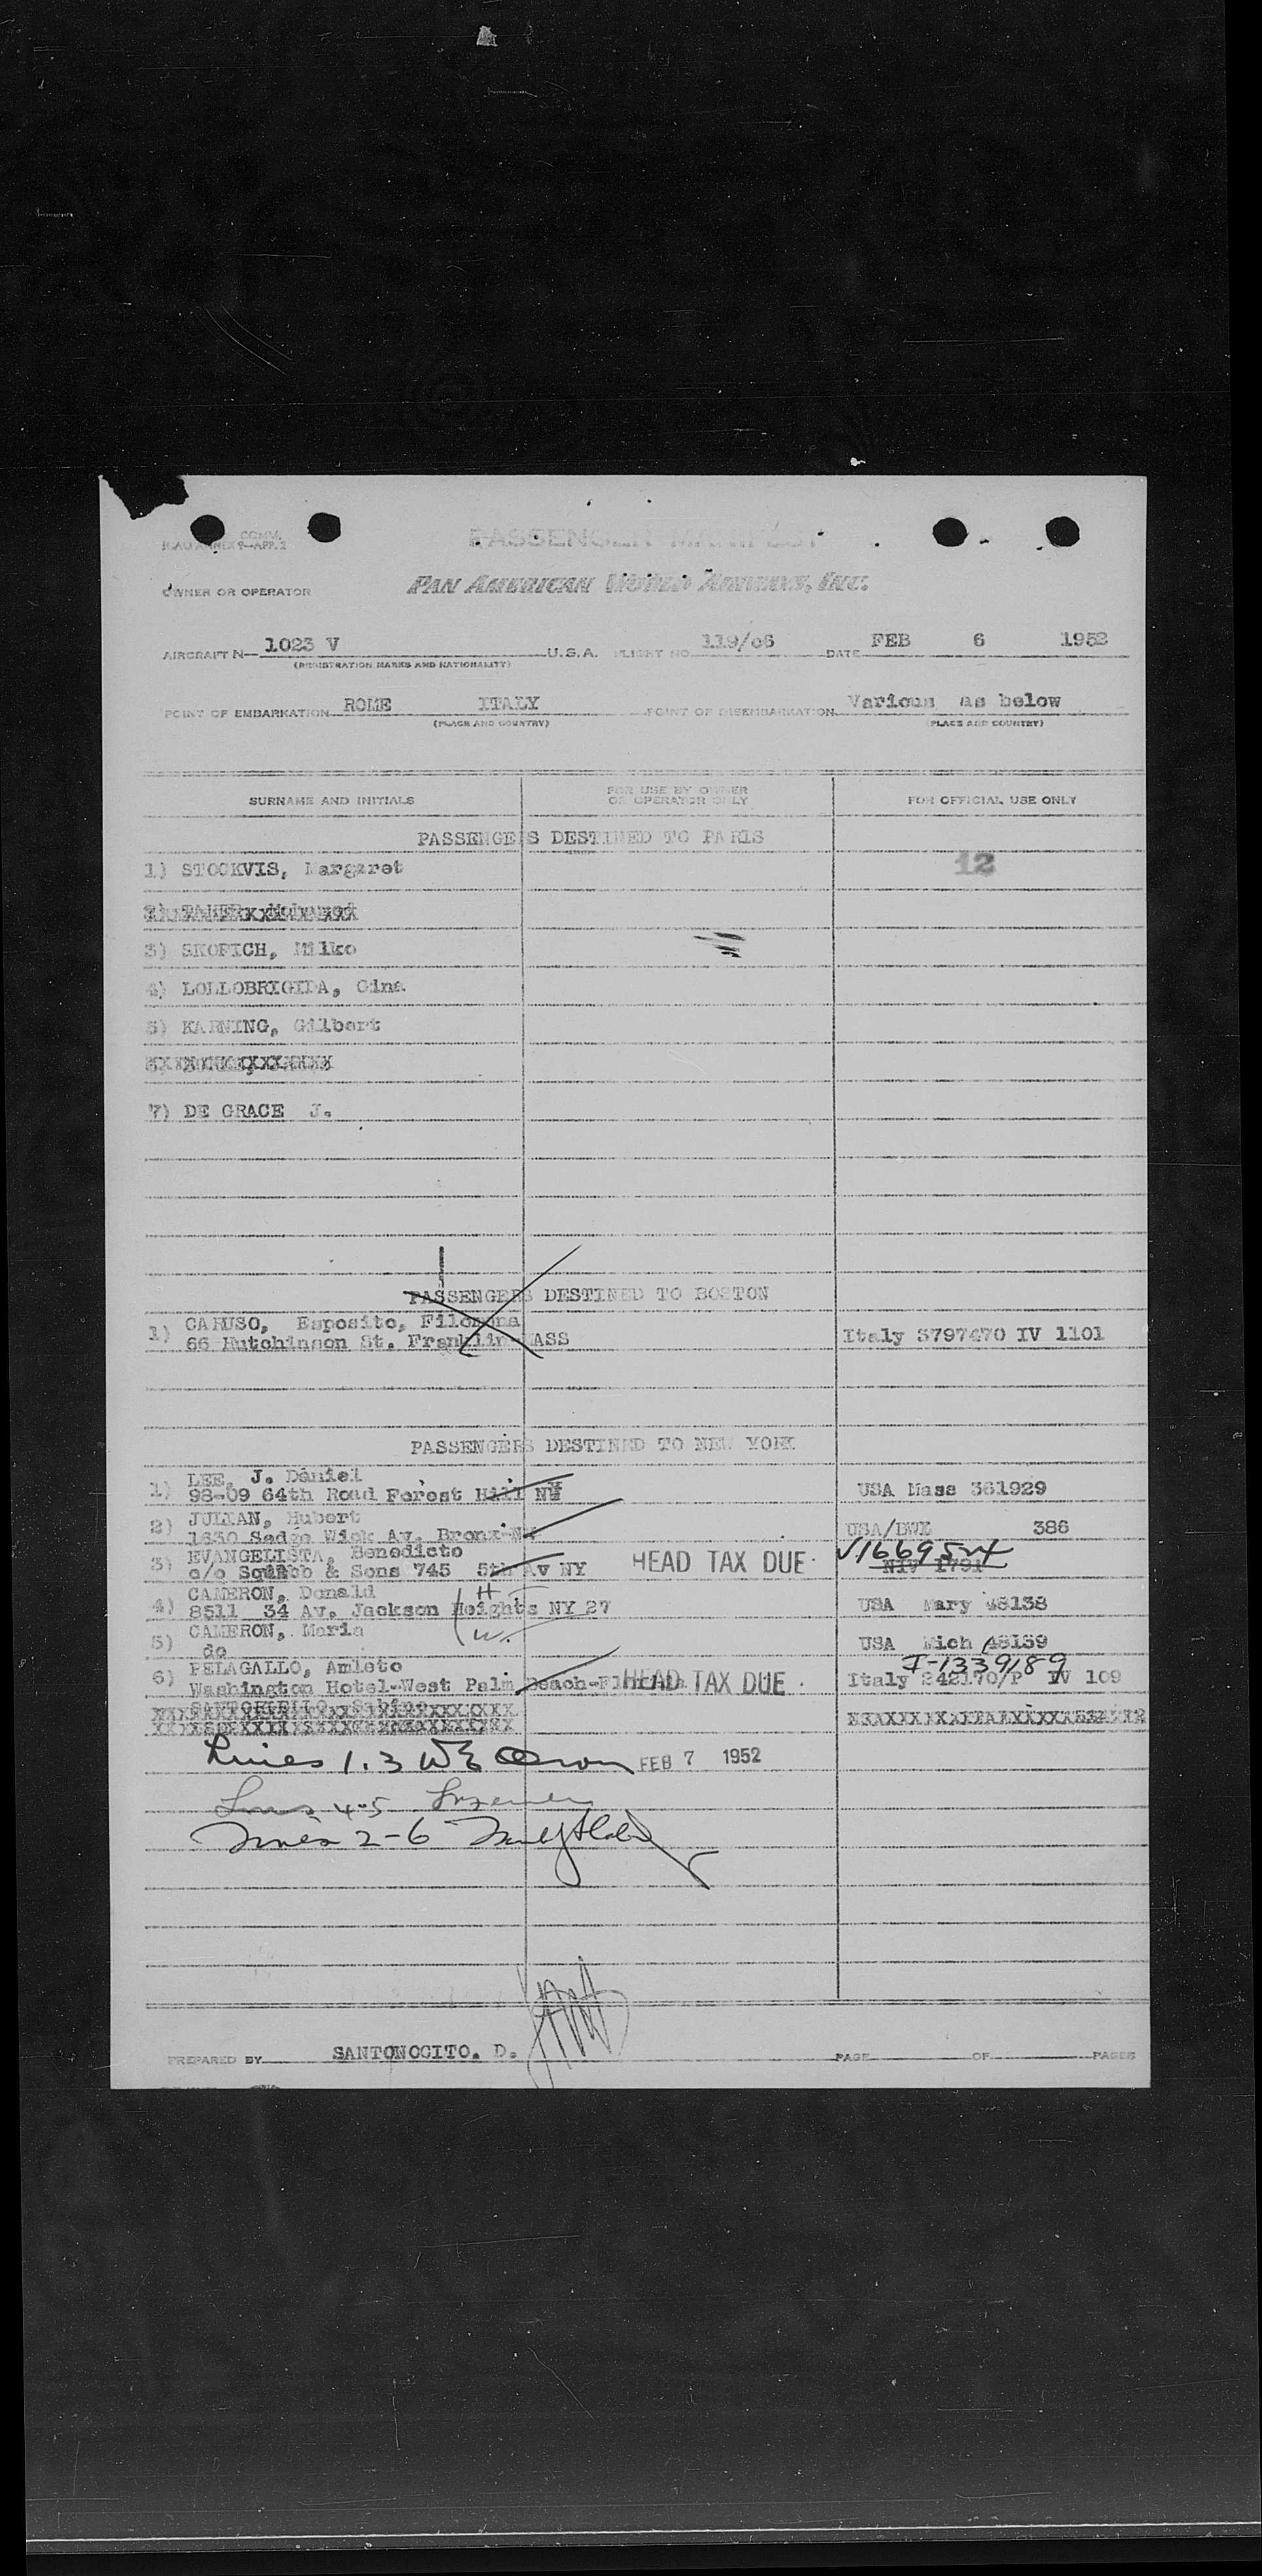 COMM.
ICAO ANNEX 9—APP. 2
PASSENGER MANIFEST
OWNER OR OPERATOR PAN AMERICAN WORLD AIRWAYS, INC.
AIRCRAFT N— 1023 V U.S.A. FLIGHT NO. 119/06 DATE FEB 6 1952
(REGISTRATION MARKS AND NATIONALITY)
POINT OF EMBARKATION ROME ITALY POINT OF DISEMBARKATION Various as below
(PLACE AND COUNTRY) (PLACE AND COUNTRY)
SURNAME AND INITIALS FOR USE BY OWNER OR OPERATOR ONLY FOR OFFICIAL USE ONLY
PASSENGERS DESTINED TO PARIS
1) STOCKVIS, Margaret 12
3) SKOFICH, Milko
4) LOLLOBRIGIDA, Gina
5) KARNING, Gilbert
7) DE GRACE J.
PASSENGERS DESTINED TO BOSTON
1) CARUSO, Esposito, Filomena
66 Hutchinson St. Franklin MASS Italy 3797470 IV 1101
PASSENGERS DESTINED TO NEW YORK
1) LEE, J. Daniel
98-09 64th Road Forest Hill NY USA Mass 361929
2) JULIAN, Hubert
1630 Sedge Wick Av. Bronx-NY USA/BWE 386
3) EVANGELISTA, Benedicto
c/o Squibb & Sons 745 5th Av NY HEAD TAX DUE NIV 1791
4) CAMERON, Donald
8511 34 Av. Jackson Heights NY 27 USA Mary 48138
5) CAMERON, Maria
do USA Mich 48139
I-1339189
6) PELAGALLO, Amleto
Washington Hotel-West Palm Beach- HEAD TAX DUE Italy 242170/P IV 109
Lines 1.3 FEB 7 1952
Lines 4-5
Lines 2-6
PREPARED BY SANTONOCITO. D. PAGE OF PAGES